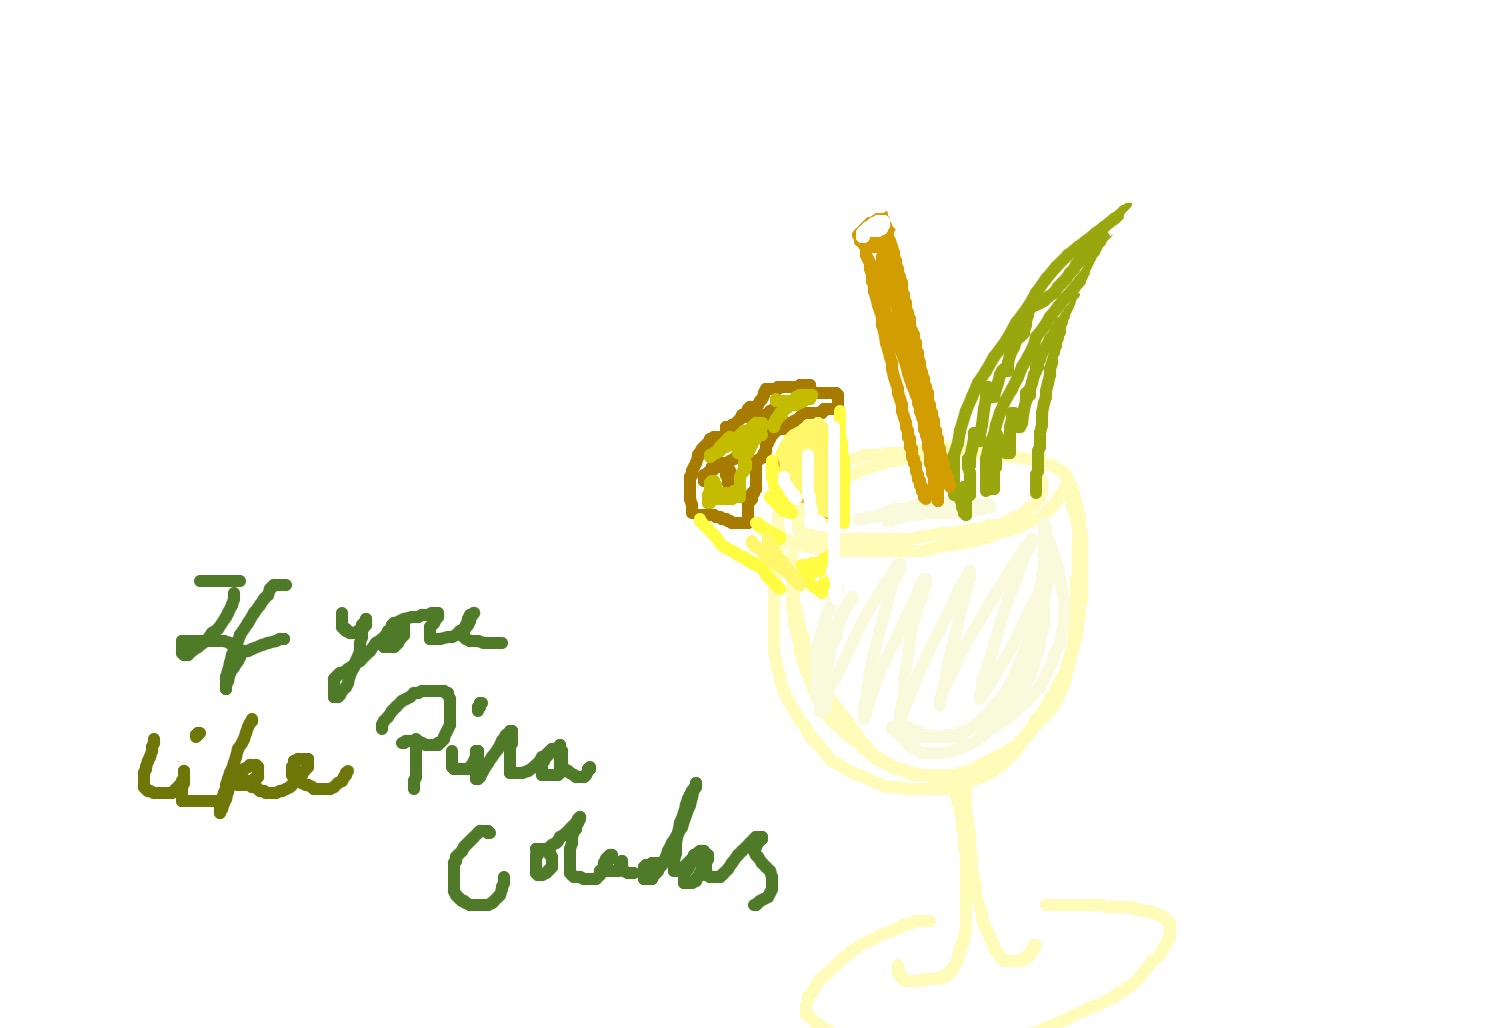 If you
like Pina
Coladas